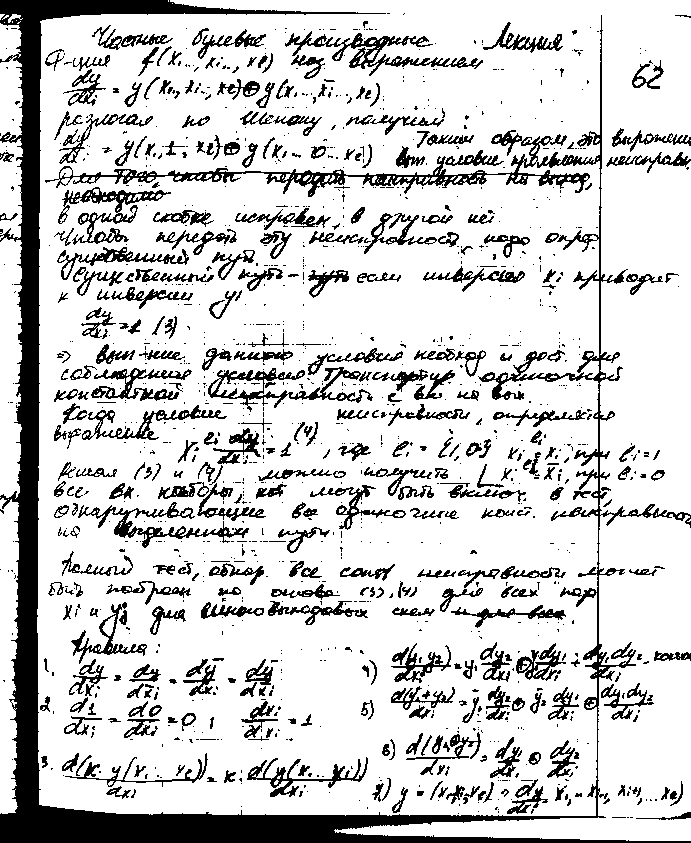 Частные булевые производные Лекция
62
Ф-ция f(x₁..., xᵢ..., xₑ) наз выражением
dy/dxᵢ = y(x₁.., xᵢ.., xₑ) ⊕ y(x₁..., x̄ᵢ..., xₑ)
разлагая по Шенону, получим:
dy/dxᵢ = y(x₁, 1, xₑ) ⊕ y(x₁... 0... xₑ) Таким образом, это выражени
вып. условие проявления неисправн
Для того чтобы передать неисправность на выход,
необходимо
в одной схеме исправен, в другой нет
Чтобы передать эту неисправность, надо опред
существенный путь
Существенный путь - путь если инверсия xᵢ приводит
к инверсии y
dy/dxᵢ = 1 (3)
⇒ вып-ние данного условия необход и дост. для
соблюдения условия транспортир одиночной
константной неисправность с вх. на вых.
Когда условие неисправности, определяется
выражение xᵢ^eᵢ dy/dxᵢ = 1 (4), где eᵢ = {1,0} xᵢ^eᵢ = xᵢ, при eᵢ=1
Решая (3) и (4) можно получить xᵢ^eᵢ = x̄ᵢ, при eᵢ=0
все вх. наборы, кот могут быть включ. в тест,
обнаруживающие все одиночные конст. неисправность
на выделенном пути.
Полный тест, обнар. все const неисправности может
быть построен на основе (3), (4) для всех пар
xᵢ и yⱼ для многовыходовых схем и для всех
Правила:
1. dy/dxᵢ = dy/dx̄ᵢ = dȳ/dxᵢ = dȳ/dx̄ᵢ
2. d1/dxᵢ = d0/dxᵢ = 0 ; dxᵢ/dxᵢ = 1
3. d(k·y(x₁... xₑ))/dxᵢ = k · d(y(x₁... xᵢ))/dxᵢ
4) d(y₁y₂)/dxᵢ = y₁ dy₂/dxᵢ ⊕ y₂ dy₁/dxᵢ ⊕ dy₁dy₂/dxᵢ
5) d(y₁+y₂)/dxᵢ = ȳ₁ dy₂/dxᵢ ⊕ ȳ₂ dy₁/dxᵢ ⊕ dy₁dy₂/dxᵢ
6) d(y₁⊕y₂)/dxᵢ = dy₁/dxᵢ ⊕ dy₂/dxᵢ
7) y = (x₁, xᵢ, xₑ) = dy/dxᵢ x₁, xᵢ₋₁, xᵢ₊₁, ... xₑ)